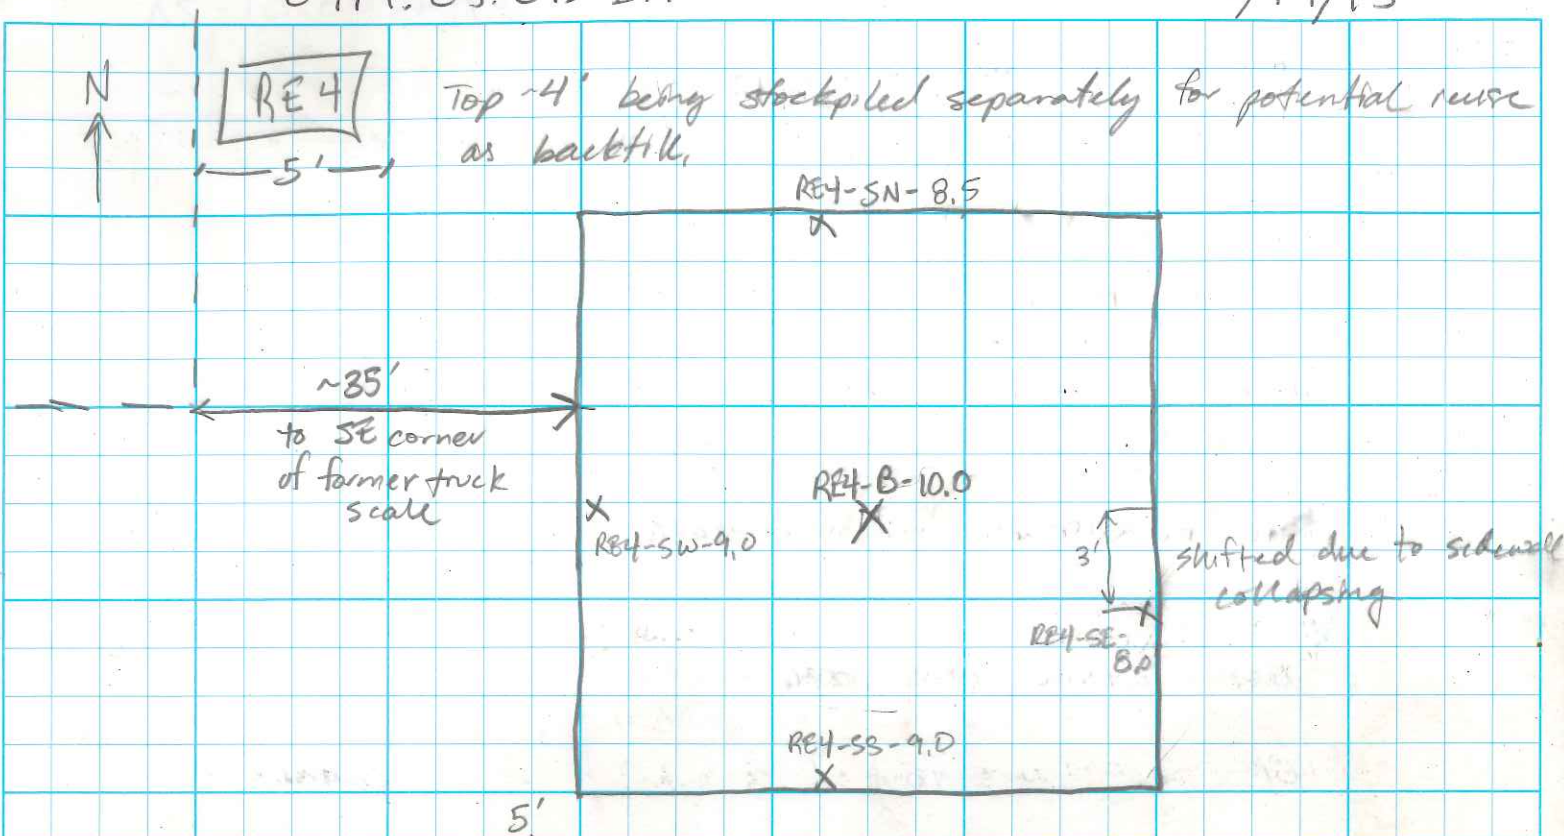 N
RE4
Top ~4' being stockpiled separately for potential reuse
as backfill.
5'
RE4-SN-8.5
~35'
to SE corner
of former truck
scale
RE4-B-10.0
RE4-SW-9.0
3'
shifted due to sidewall
collapsing
RE4-SE-
8.0
RE4-SS-9.0
5'